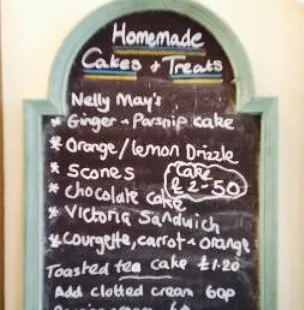 Homemade
Cakes + Treats
Nelly May's
* Ginger + Parsnip cake
* Orange/lemon Drizzle
* Scones
Cake
£2-50
* Chocolate Cake
* Victoria Sandwich
* Courgette, carrot + orange
Toasted tea cake £1.20
Add clotted cream 60p